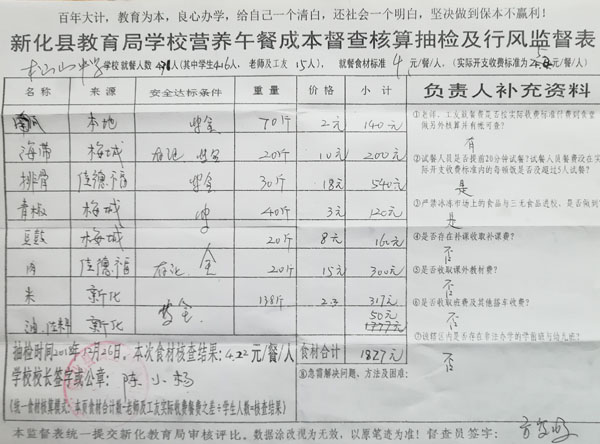 百年大计，教育为本，良心办学，给自己一个清白，还社会一个明白，坚决做到保本不赢利！
新化县教育局学校营养午餐成本督查核算抽检及行风监督表
学校就餐人数 人(其中学生416人，老师及工友15人)，就餐食材标准 4 元/餐/人，(实际开支收费标准为 元/餐/人)
名称 来源 安全达标条件 重量 价格 小计 负责人补充资料
南瓜 本地 安全 70斤 2元 140元
海带 梅城 安全 20斤 10元 200元
排骨 佳德福 安全 30斤 18元 540元
青椒 梅城 40斤 3元 120元
豆豉 梅城 20斤 8元 160元
肉 佳德福 全 20斤 15元 300元
米 新化 安全 138斤 2.3 317元
油 新化 50元
①老师、工友就餐费是否按实际收费标准付费到食堂
做另外核算并有帐可查？
有
②试餐人员是否提前20分钟试餐？试餐人员餐费没在实
际开支收费标准内的每顿饭是否没超过5人试餐？
是
③严禁冰冻市场上的食品与三无食品进校，是否做到？
是
④是否存在补课收取补课费？
否
⑤是否收取课外教材费？
否
⑥是否收取班费及其他搭车收费？
否
否
抽检时间2018年 月26日，本次食材核查结果：4.22元/餐/人 食材合计 1827元
学校校长签字或公章： 陈小杨
⑧急需解决问题、方法及困难：
(统一食材核算模式：本页食材合计数-老师及工友实际收费餐费之差÷学生人数=核查结果)
本监督表统一提交新化教育局审核评比。数据涂改视为无效，以原笔迹为准！督查员签字：